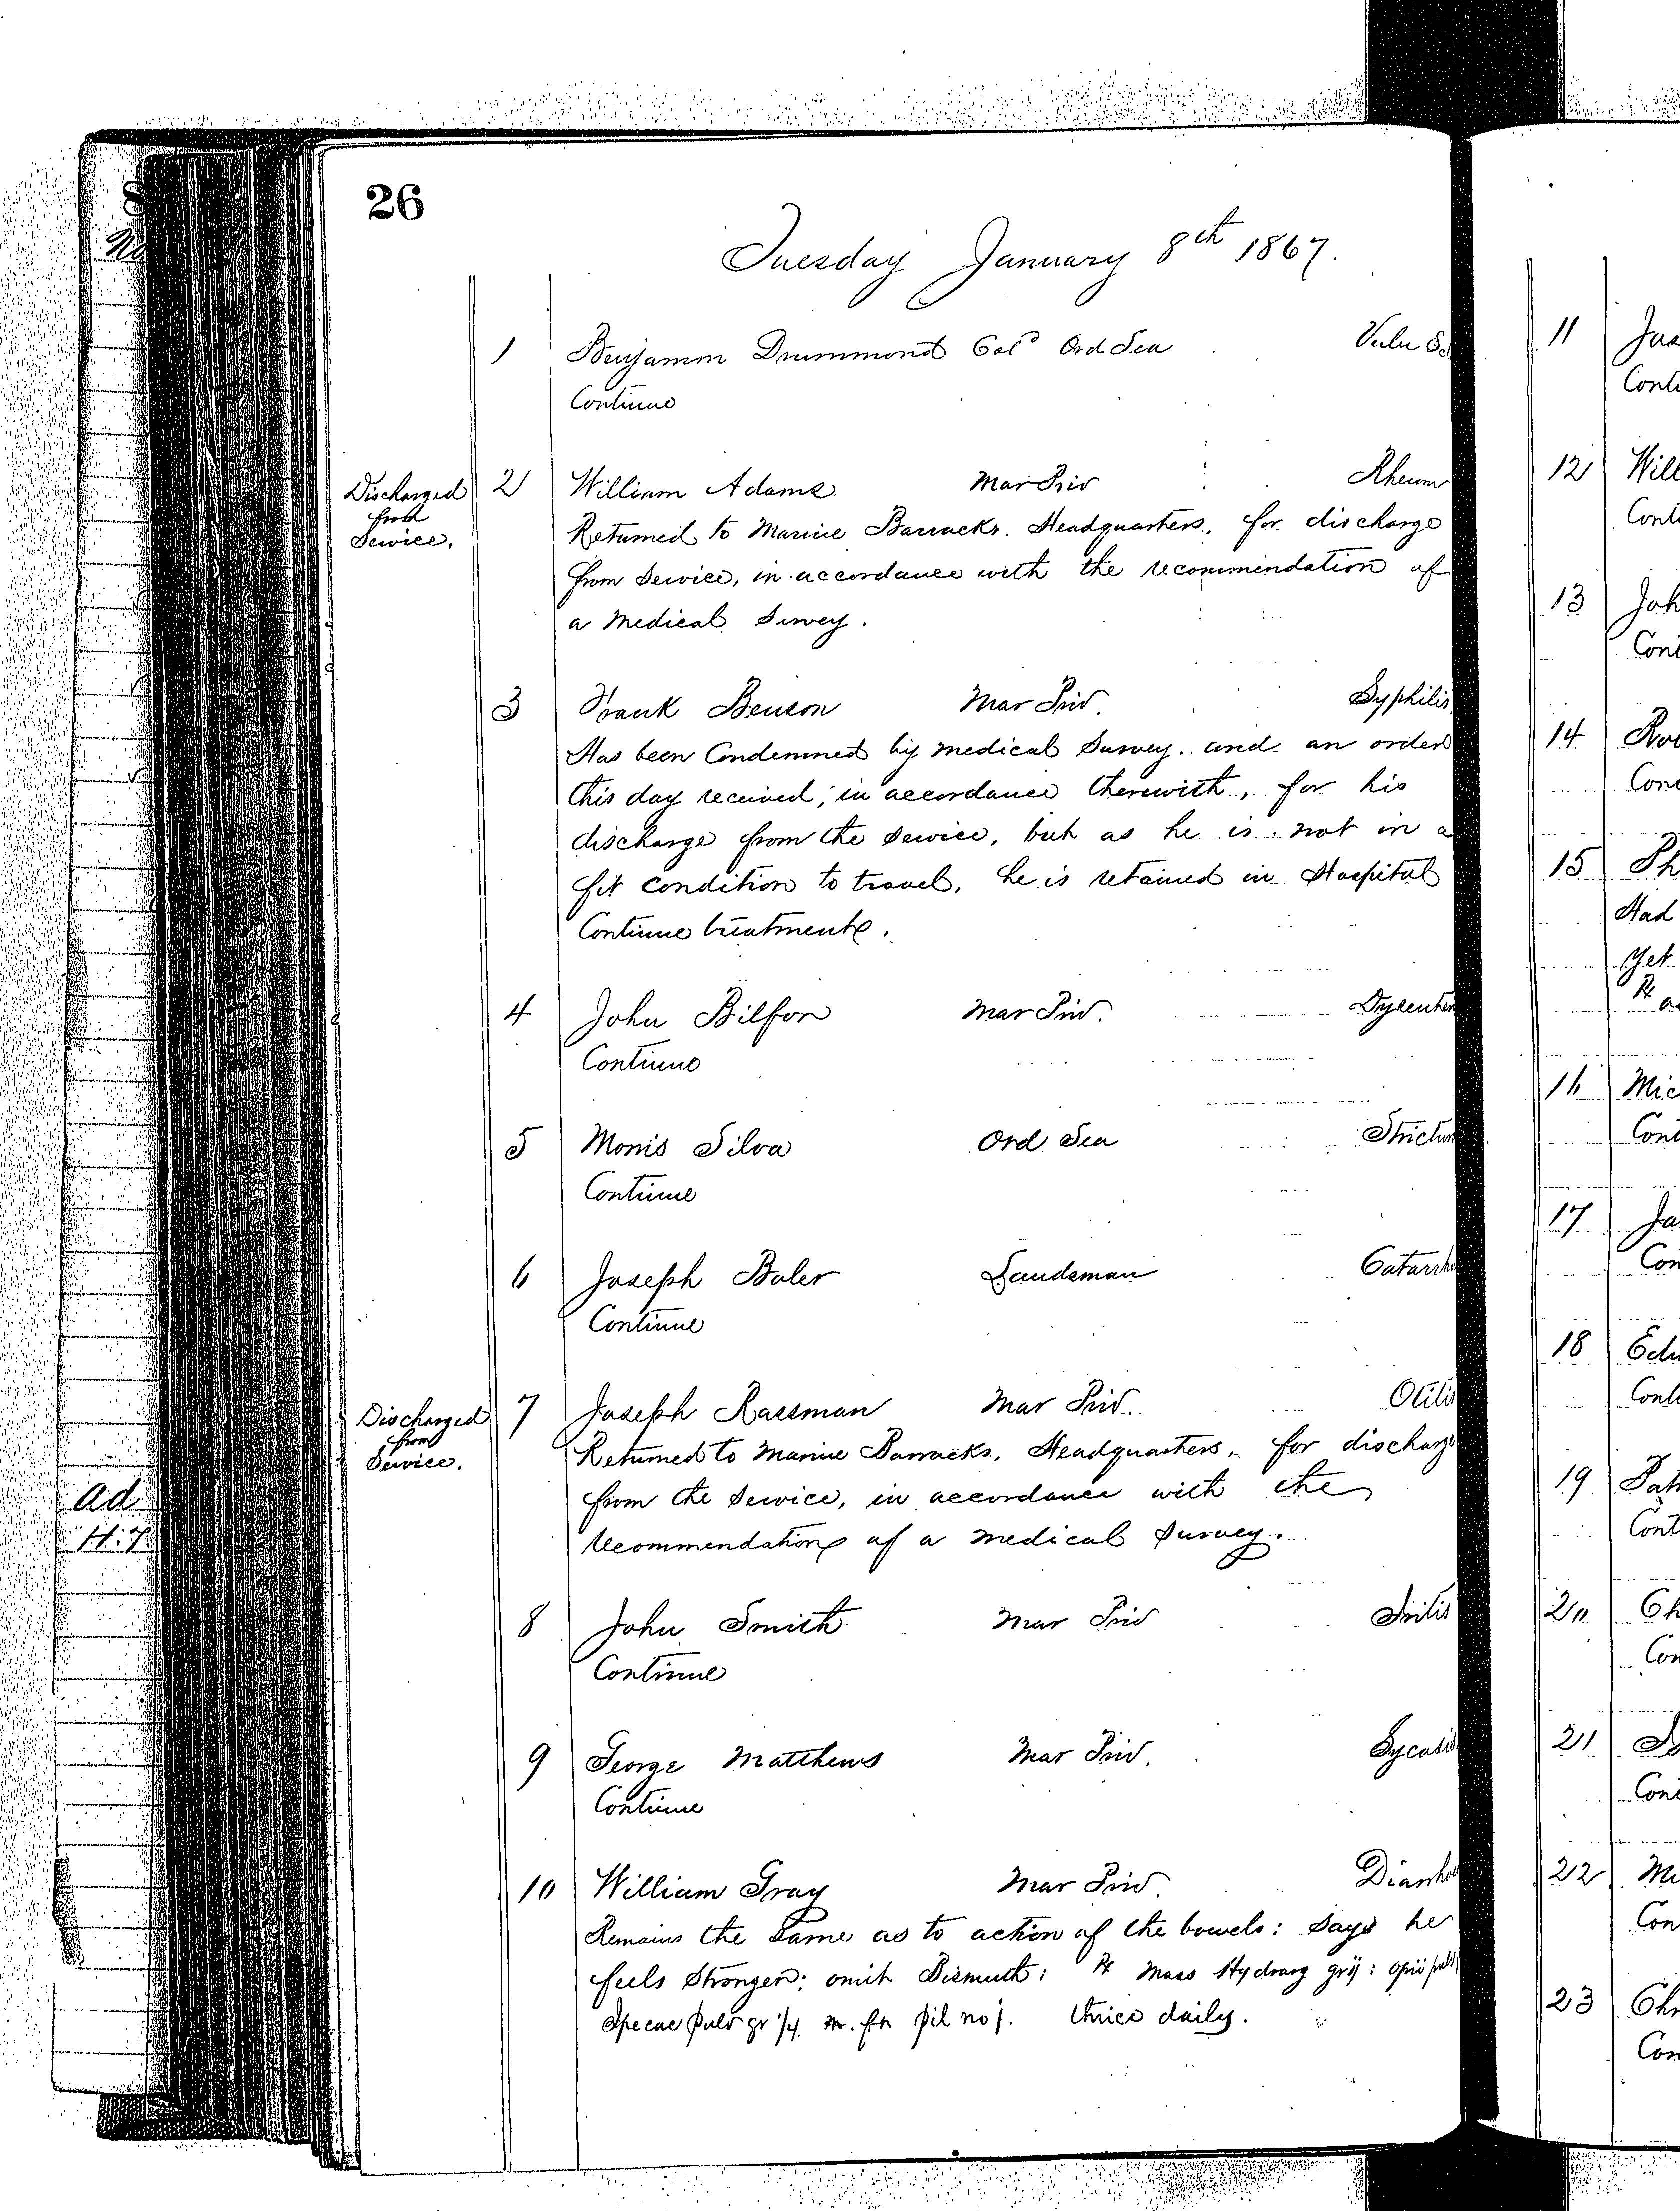 26
Tuesday January 8th 1867.
1 Benjamin Drummond Cold Ord Sea
Continue
Discharged from Service.
2 William Adams Mar Priv Rheum
Returned to Marine Barracks. Headquarters, for discharge
from service, in accordance with the recommendation of
a medical survey.
3 Frank Benson Mar Priv. Syphilis
Has been Condemned by medical survey. and an order
this day received, in accordance therewith, for his
discharge from the service, but as he is not in a
fit condition to travel, he is retained in Hospital
Continue treatment.
4 John Bilfor Mar Priv. Dysenter
Continue
5 Monis Silva Ord Sea Strictur
Continue
6 Joseph Baler Landsman Catarrh
Continue
Discharged from Service.
7 Joseph Rassman Mar Priv. Otitis
Returned to Marine Barracks. Headquarters, for discharge
from the service, in accordance with the
recommendation of a medical survey.
8 John Smith Mar Priv Iritis
Continue
9 George Matthews Mar Priv. Sycosis
Continue
10 William Gray Mar Priv. Diarrhoe
Remains the same as to action of the bowels: says he
feels stronger; omit Bismuth: ℞ Mass Hydrarg grij: opii pulv
Ipecac pulv gr 1/4. m. ft pil no j. thrice daily.
11 Jas
Cont
12 Will
Cont
13 Joh
Cont
14
Con
15 Ph
Had
Yet
16 Mic
Cont
17 Ja
Con
18 Edw
Cont
19 Pat
Cont
20 Ch
Con
21
Cont
22
Con
23 Chr
Con